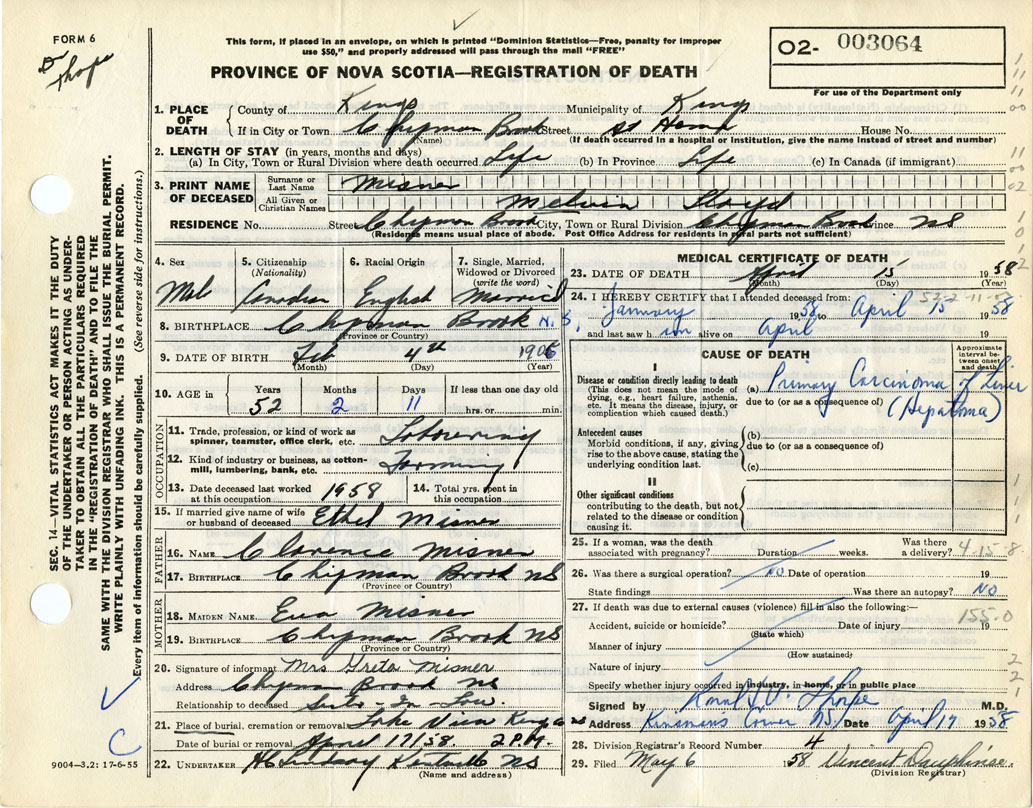 FORM 6
Dr Thorpe
This form, if placed in an envelope, on which is printed "Dominion Statistics—Free, penalty for improper
use $50," and properly addressed will pass through the mail "FREE"
PROVINCE OF NOVA SCOTIA—REGISTRATION OF DEATH
O2- 003064
For use of the Department only
1. PLACE OF DEATH
County of Kings Municipality of Kings
If in City or Town Chipman Brook Street At Home House No.
(Name) (If death occurred in a hospital or institution, give the name instead of street and number)
2. LENGTH OF STAY (in years, months and days)
(a) In City, Town or Rural Division where death occurred Life (b) In Province Life (c) In Canada (if immigrant)
3. PRINT NAME OF DECEASED
Surname or Last Name Misner
All Given or Christian Names Melvin Lloyd
RESIDENCE No. Street Chipman Brook City, Town or Rural Division Chipman Brook Province NS
(Residence means usual place of abode. Post Office Address for residents in rural parts not sufficient)
4. Sex Male
5. Citizenship (Nationality) Canadian
6. Racial Origin English
7. Single, Married, Widowed or Divorced (write the word) Married
8. BIRTHPLACE Chipman Brook N.S.
(Province or Country)
9. DATE OF BIRTH Feb 4th 1906
(Month) (Day) (Year)
10. AGE in Years 52 Months 2 Days 11 If less than one day old hrs. or min.
OCCUPATION
11. Trade, profession, or kind of work as
spinner, teamster, office clerk, etc. Labouring
12. Kind of industry or business, as cotton-
mill, lumbering, bank, etc. Farming
13. Date deceased last worked
at this occupation 1958
14. Total yrs. spent in
this occupation
15. If married give name of wife
or husband of deceased Ethel Misner
FATHER
16. NAME Clarence Misner
17. BIRTHPLACE Chipman Brook NS
(Province or Country)
MOTHER
18. MAIDEN NAME Eva Misner
19. BIRTHPLACE Chipman Brook NS
(Province or Country)
20. Signature of informant Mrs Greta Misner
Address Chipman Brook NS
Relationship to deceased Sister-In-Law
21. Place of burial, cremation or removal Lake View Kings Co NS
Date of burial or removal April 17/58. 2 P.M.
22. UNDERTAKER H Lindsay Kentville NS
(Name and address)
MEDICAL CERTIFICATE OF DEATH
23. DATE OF DEATH April 15 1958
(Month) (Day) (Year)
24. I HEREBY CERTIFY that I attended deceased from:
January 1958 to April 15 1958
and last saw him alive on April
CAUSE OF DEATH
Approximate interval between onset and death
I
Disease or condition directly leading to death
(This does not mean the mode of
dying, e.g., heart failure, asthenia,
etc. It means the disease, injury, or
complication which caused death.)
(a) Primary Carcinoma of Liver
due to (or as a consequence of) (Hepatoma)
Antecedent causes
Morbid conditions, if any, giving
rise to the above cause, stating the
underlying condition last.
(b)
due to (or as a consequence of)
(c)
II
Other significant conditions
contributing to the death, but not
related to the disease or condition
causing it.
25. If a woman, was the death
associated with pregnancy? Duration weeks. Was there
a delivery?
4-15-8
26. Was there a surgical operation? NO Date of operation 19
State findings Was there an autopsy? NO
27. If death was due to external causes (violence) fill in also the following:—
155-0
Accident, suicide or homicide? Date of injury 19
(State which)
Manner of injury
(How sustained)
Nature of injury
Specify whether injury occurred in industry, in home, or in public place
Signed by Thorpe M.D.
Address Kinsman's Corner NS. Date April 17 1958
28. Division Registrar's Record Number 4
29. Filed May 6 1958 Vincent Dauphinee
(Division Registrar)
SEC. 14—VITAL STATISTICS ACT MAKES IT THE DUTY
OF THE UNDERTAKER OR PERSON ACTING AS UNDER-
TAKER TO OBTAIN ALL THE PARTICULARS REQUIRED
IN THE "REGISTRATION OF DEATH" AND TO FILE THE
SAME WITH THE DIVISION REGISTRAR WHO SHALL ISSUE THE BURIAL PERMIT.
WRITE PLAINLY WITH UNFADING INK. THIS IS A PERMANENT RECORD.
Every item of information should be carefully supplied. (See reverse side for instructions.)
C
9004—3.2: 17-6-55